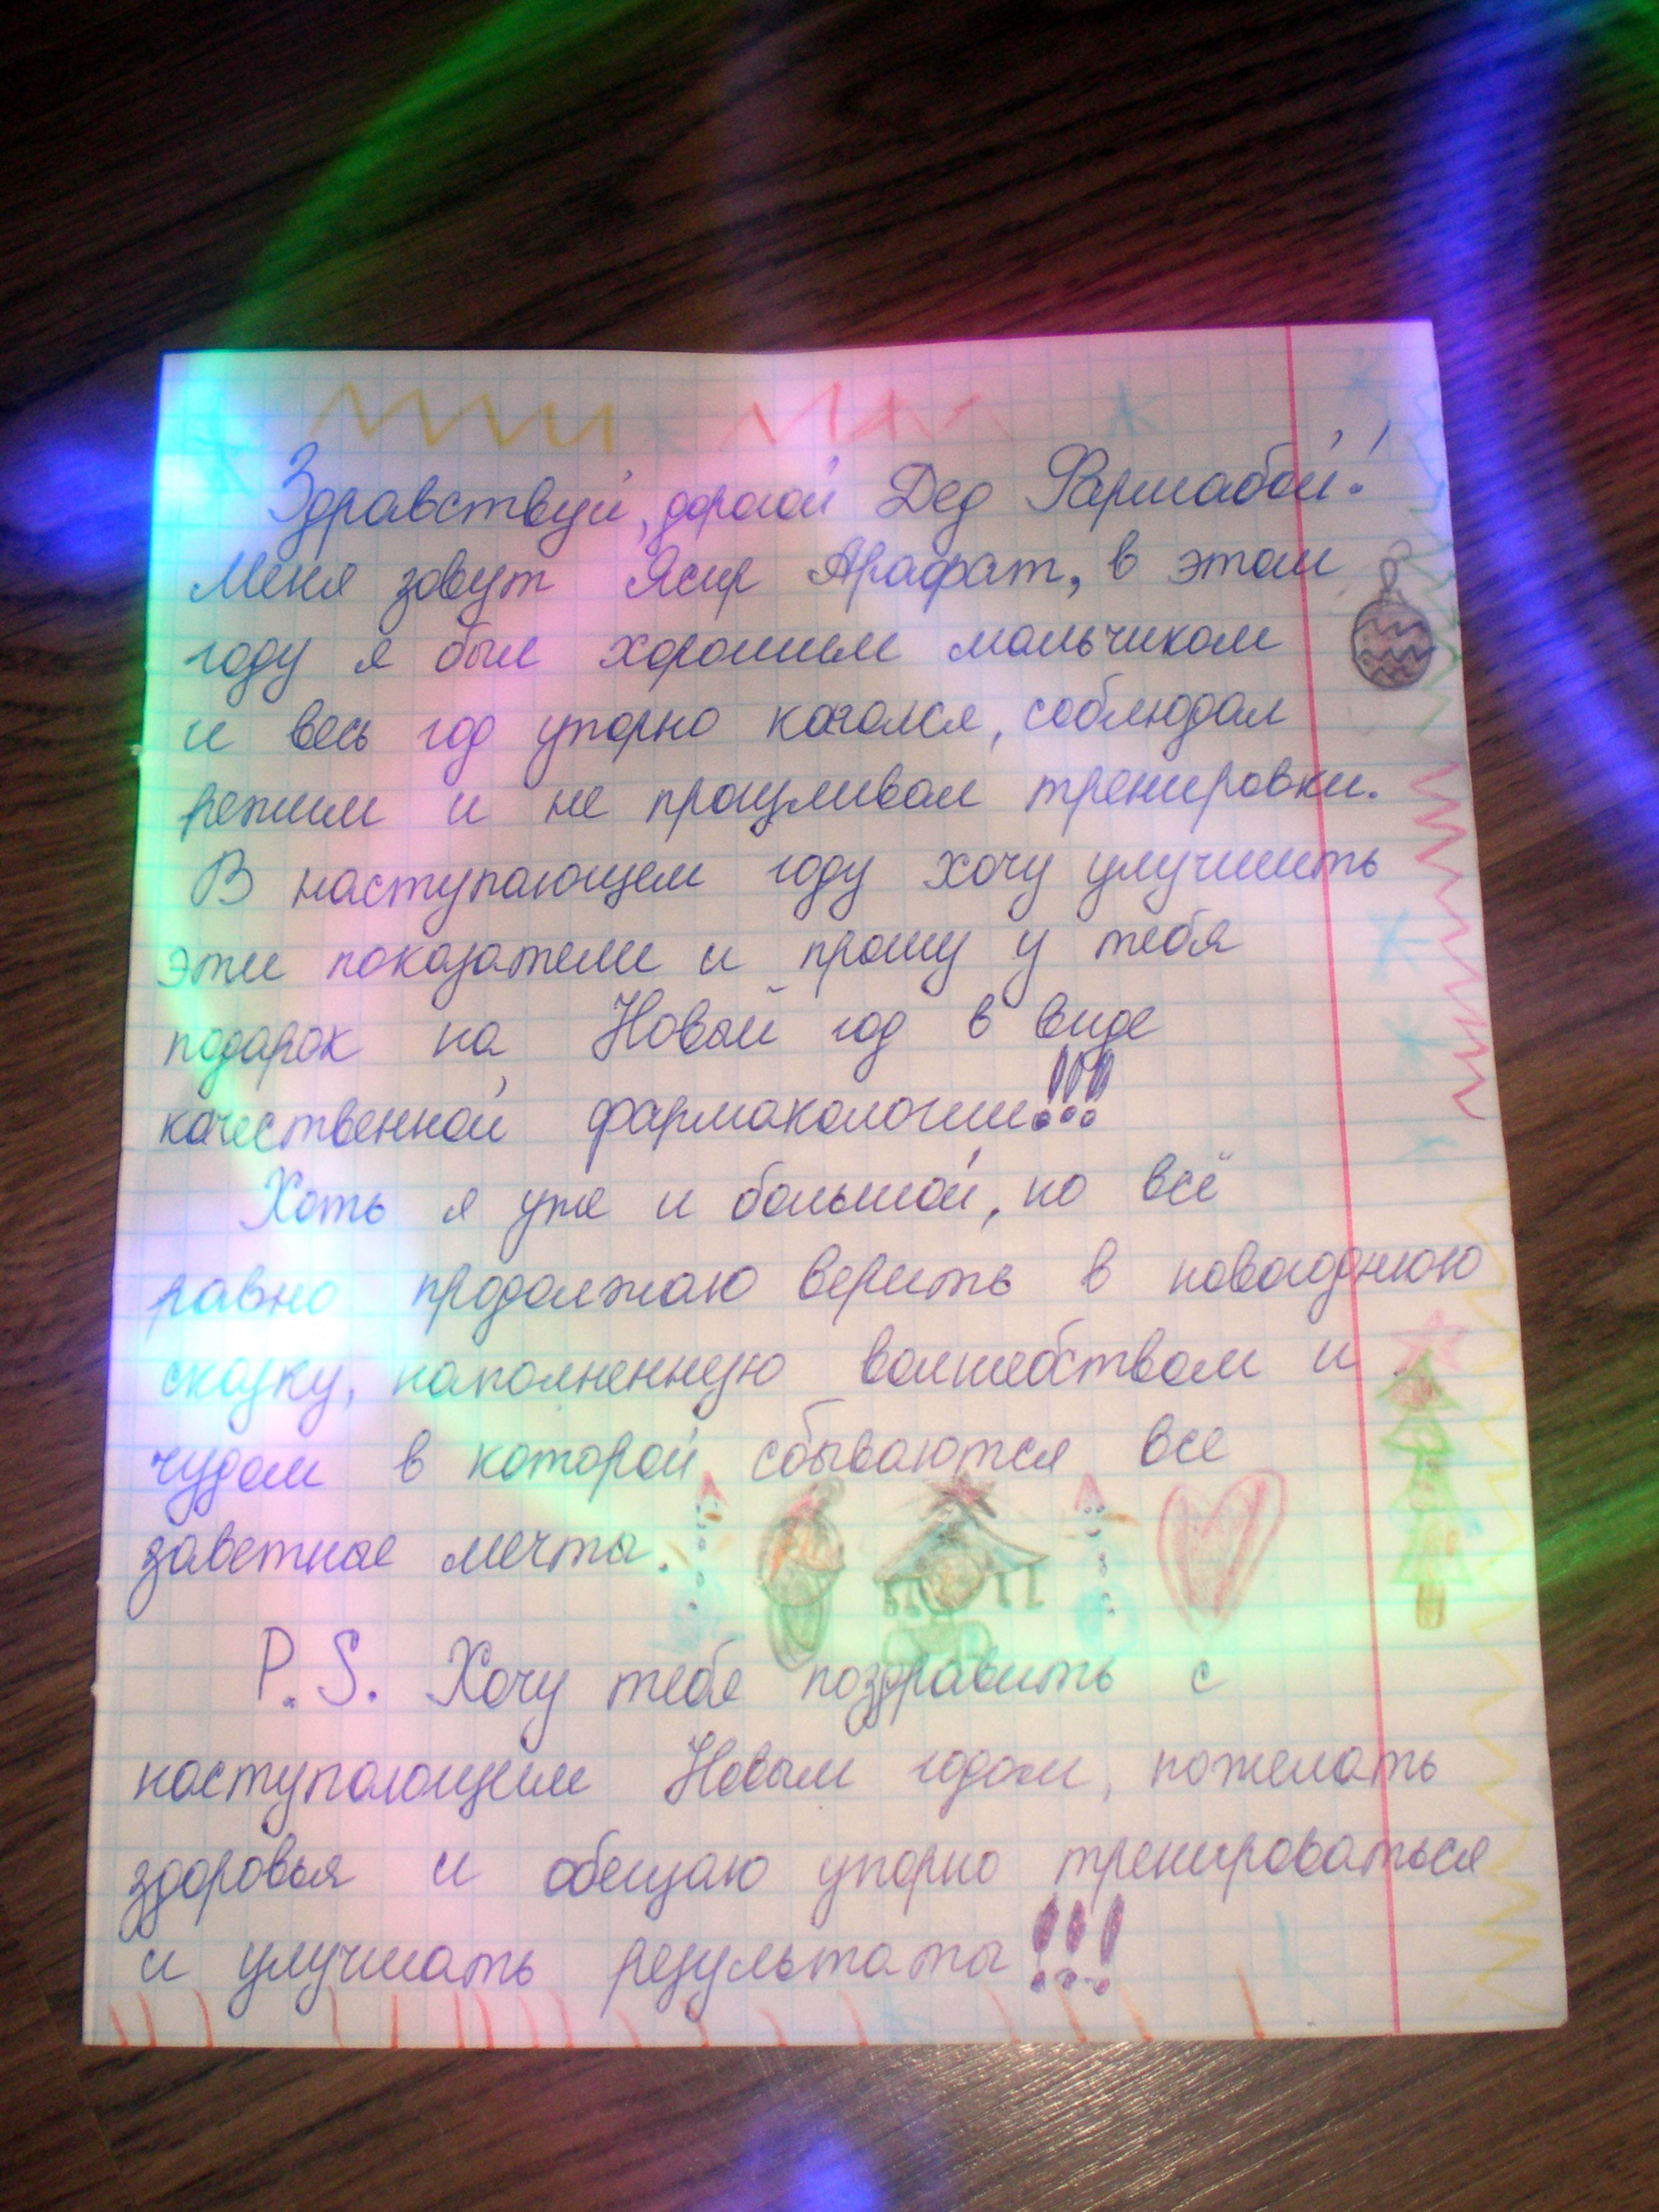 Здравствуй, дорогой Дед Фармабой!
Меня зовут Ясир Арафат, в этом
году я был хорошим мальчиком
и весь год упорно качался, соблюдал
режим и не прогуливал тренировки.
В наступающем году хочу улучшить
эти показатели и прошу у тебя
подарок на Новый год в виде
качественной фармакологии!!!
Хоть я уже и большой, но всё
равно продолжаю верить в новогоднюю
сказку, наполненную волшебством и
чудом в которой сбываются все
заветные мечты.
P.S. Хочу тебя поздравить с
наступающим Новым годом, пожелать
здоровья и обещаю упорно тренироваться
и улучшать результаты!!!